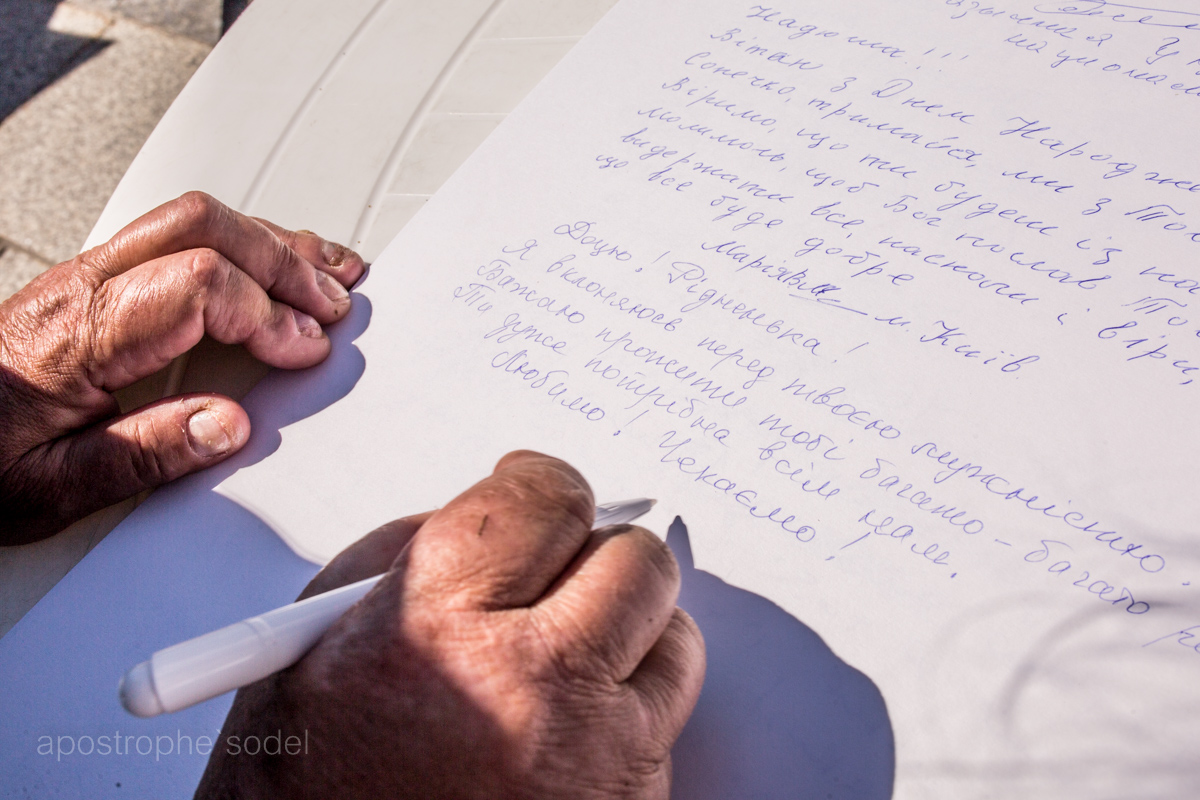 Надюша!!!
Вітаю з Днем Народже
Сонечко, тримайся, ми з То
Віримо, що ти будеш із на
молимось, щоб Бог послав То
видержати все, наснаги і віри,
що все буде добре
Марія м. Київ.
Доцю! Рідненька!
Я вклоняюсь перед твоєю мужністю.
Бажаю прожити тобі багато-багато
Ти дуже потрібна всім нам.
Любимо! Чекаємо!
apostrophe`sodel